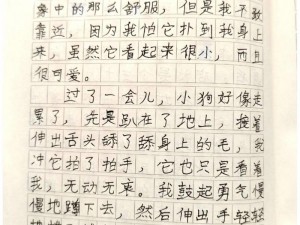 象中的那么舒服，但是我不敢
靠近，因为我怕它扑到我身上
来，虽然它看起来很小，而且
很可爱。
过了一会儿，小狗好像走
累了，先是趴在了地上，接着
伸出舌头舔了舔身上的毛，我
冲它拍了拍手，它也只是看着
我，无动无衷。我鼓起勇气慢
慢地蹲下去，然后伸出手轻轻